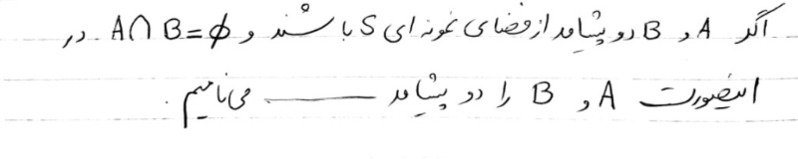 اگر A و B دو پیشامد از فضای نمونه ای S باشند و A∩B=ϕ. در
اینصورت A و B را دو پیشامد ــــــــ می نامیم.